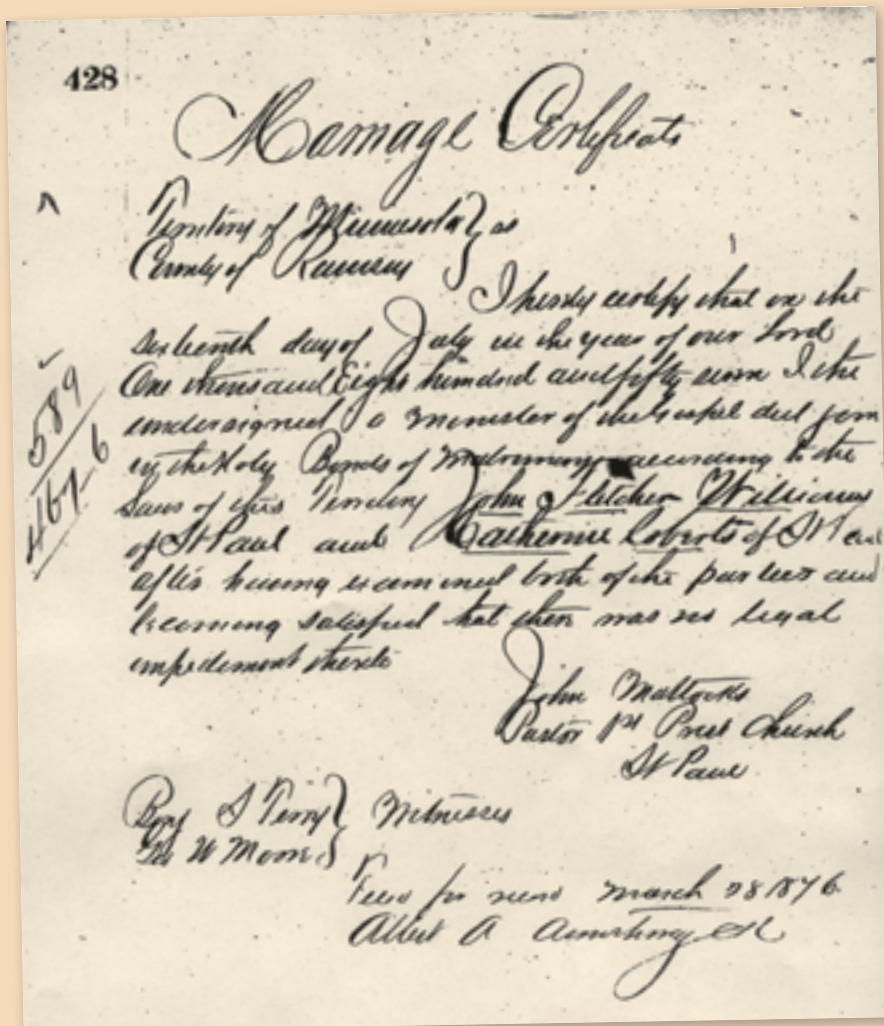 428
Marriage Certificate
Territory of Minnesota } ss
County of Ramsey
I hereby certify that on the
sixteenth day of July in the year of our Lord
One thousand Eight hundred and fifty seven I the
undersigned a Minister of the Gospel did join
in the Holy Bonds of Matrimony according to the
Laws of this Territory John Fletcher Williams
of St Paul and Catherine Roberts of St Paul
after having examined both of the parties and
becoming satisfied that there was no legal
impediment thereto
589
467-6
John Mattocks
Pastor 1st Pres Church
St Paul
Benj S Terry } Witnesses
Geo W Moore
Filed for record March 28 1876
Albert A Armstrong